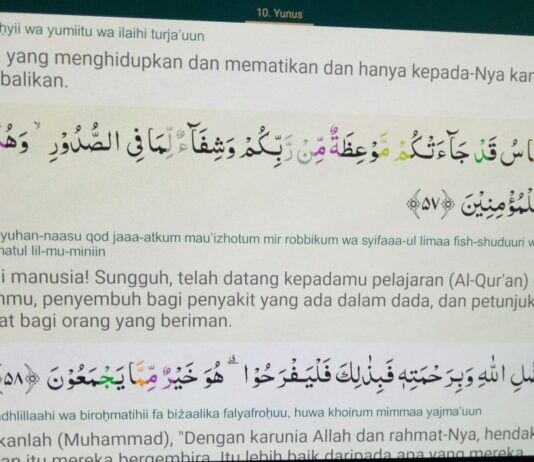 10. Yunus
ḥyii wa yumiitu wa ilaihi turja'uun
yang menghidupkan dan mematikan dan hanya kepada-Nya
balikan.
قَدْ جَآءَتْكُمْ مَّوْعِظَةٌ مِّنْ رَّبِّكُمْ وَشِفَآءٌ لِّمَا فِى الصُّدُوْرِ ۙ
﴿٥٧﴾
yuhan-naasu qod jaaa-atkum mau'izhotum mir robbikum wa syifaaa-ul limaa fish-shuduuri
matul lil-mu-miniin
i manusia! Sungguh, telah datang kepadamu pelajaran (Al-Qur'an)
mu, penyembuh bagi penyakit yang ada dalam dada, dan petunjuk
at bagi orang yang beriman.
اللّٰهِ وَبِرَحْمَتِهٖ فَبِذٰلِكَ فَلْيَفْرَحُوْا ۗ هُوَ خَيْرٌ مِّمَّا يَجْمَعُوْنَ ﴿٥٨﴾
dhlillaahi wa biroḥmatihii fa biżaalika falyafroḥuu, huwa khoirum mimmaa yajma'uun
kanlah (Muhammad), "Dengan karunia Allah dan rahmat-Nya, hendak
itu mereka bergembira. Itu lebih baik daripada apa yang mereka